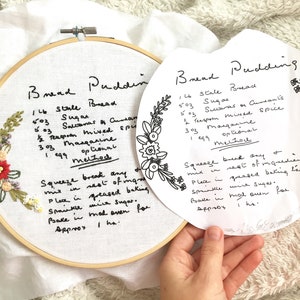 Bread Pudding
1 lb Stale Bread
5 oz Sugar
5 oz Sultanas or Currants
½ Teaspoon Mixed Spice
3 oz Margarine
1 egg optional
Method
Squeeze bread dry &
mix in rest of
Place in greased baking
Sprinkle with Sugar.
Bake in mod oven for
Approx 1 hr.
Bread Pudding
1 lb Stale Bread
5 oz Sugar
5 oz Sultanas or Currants
½ Teaspoon Mixed Spice
3 oz Margarine
1 egg optional
Method
Squeeze bread dry &
mix in rest of
Place in greased baking
Sprinkle with Sugar.
Bake in mod oven for
Approx 1 hr.